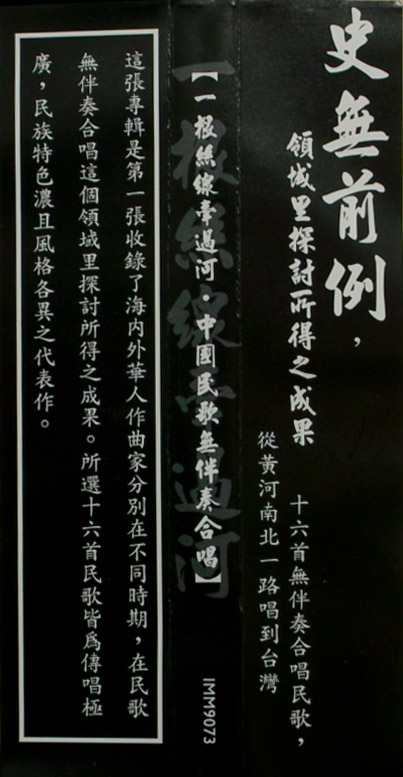 史無前例，
領域里探討所得之成果
十六首無伴奏合唱民歌，
從黃河南北一路唱到台灣
【一根絲線牽過河·中國民歌無伴奏合唱】
一根絲線牽過河
IMM9073
這張專輯是第一張收錄了海內外華人作曲家分別在不同時期，在民歌
無伴奏合唱這個領域里探討所得之成果。所選十六首民歌皆爲傳唱極
廣，民族特色濃且風格各異之代表作。